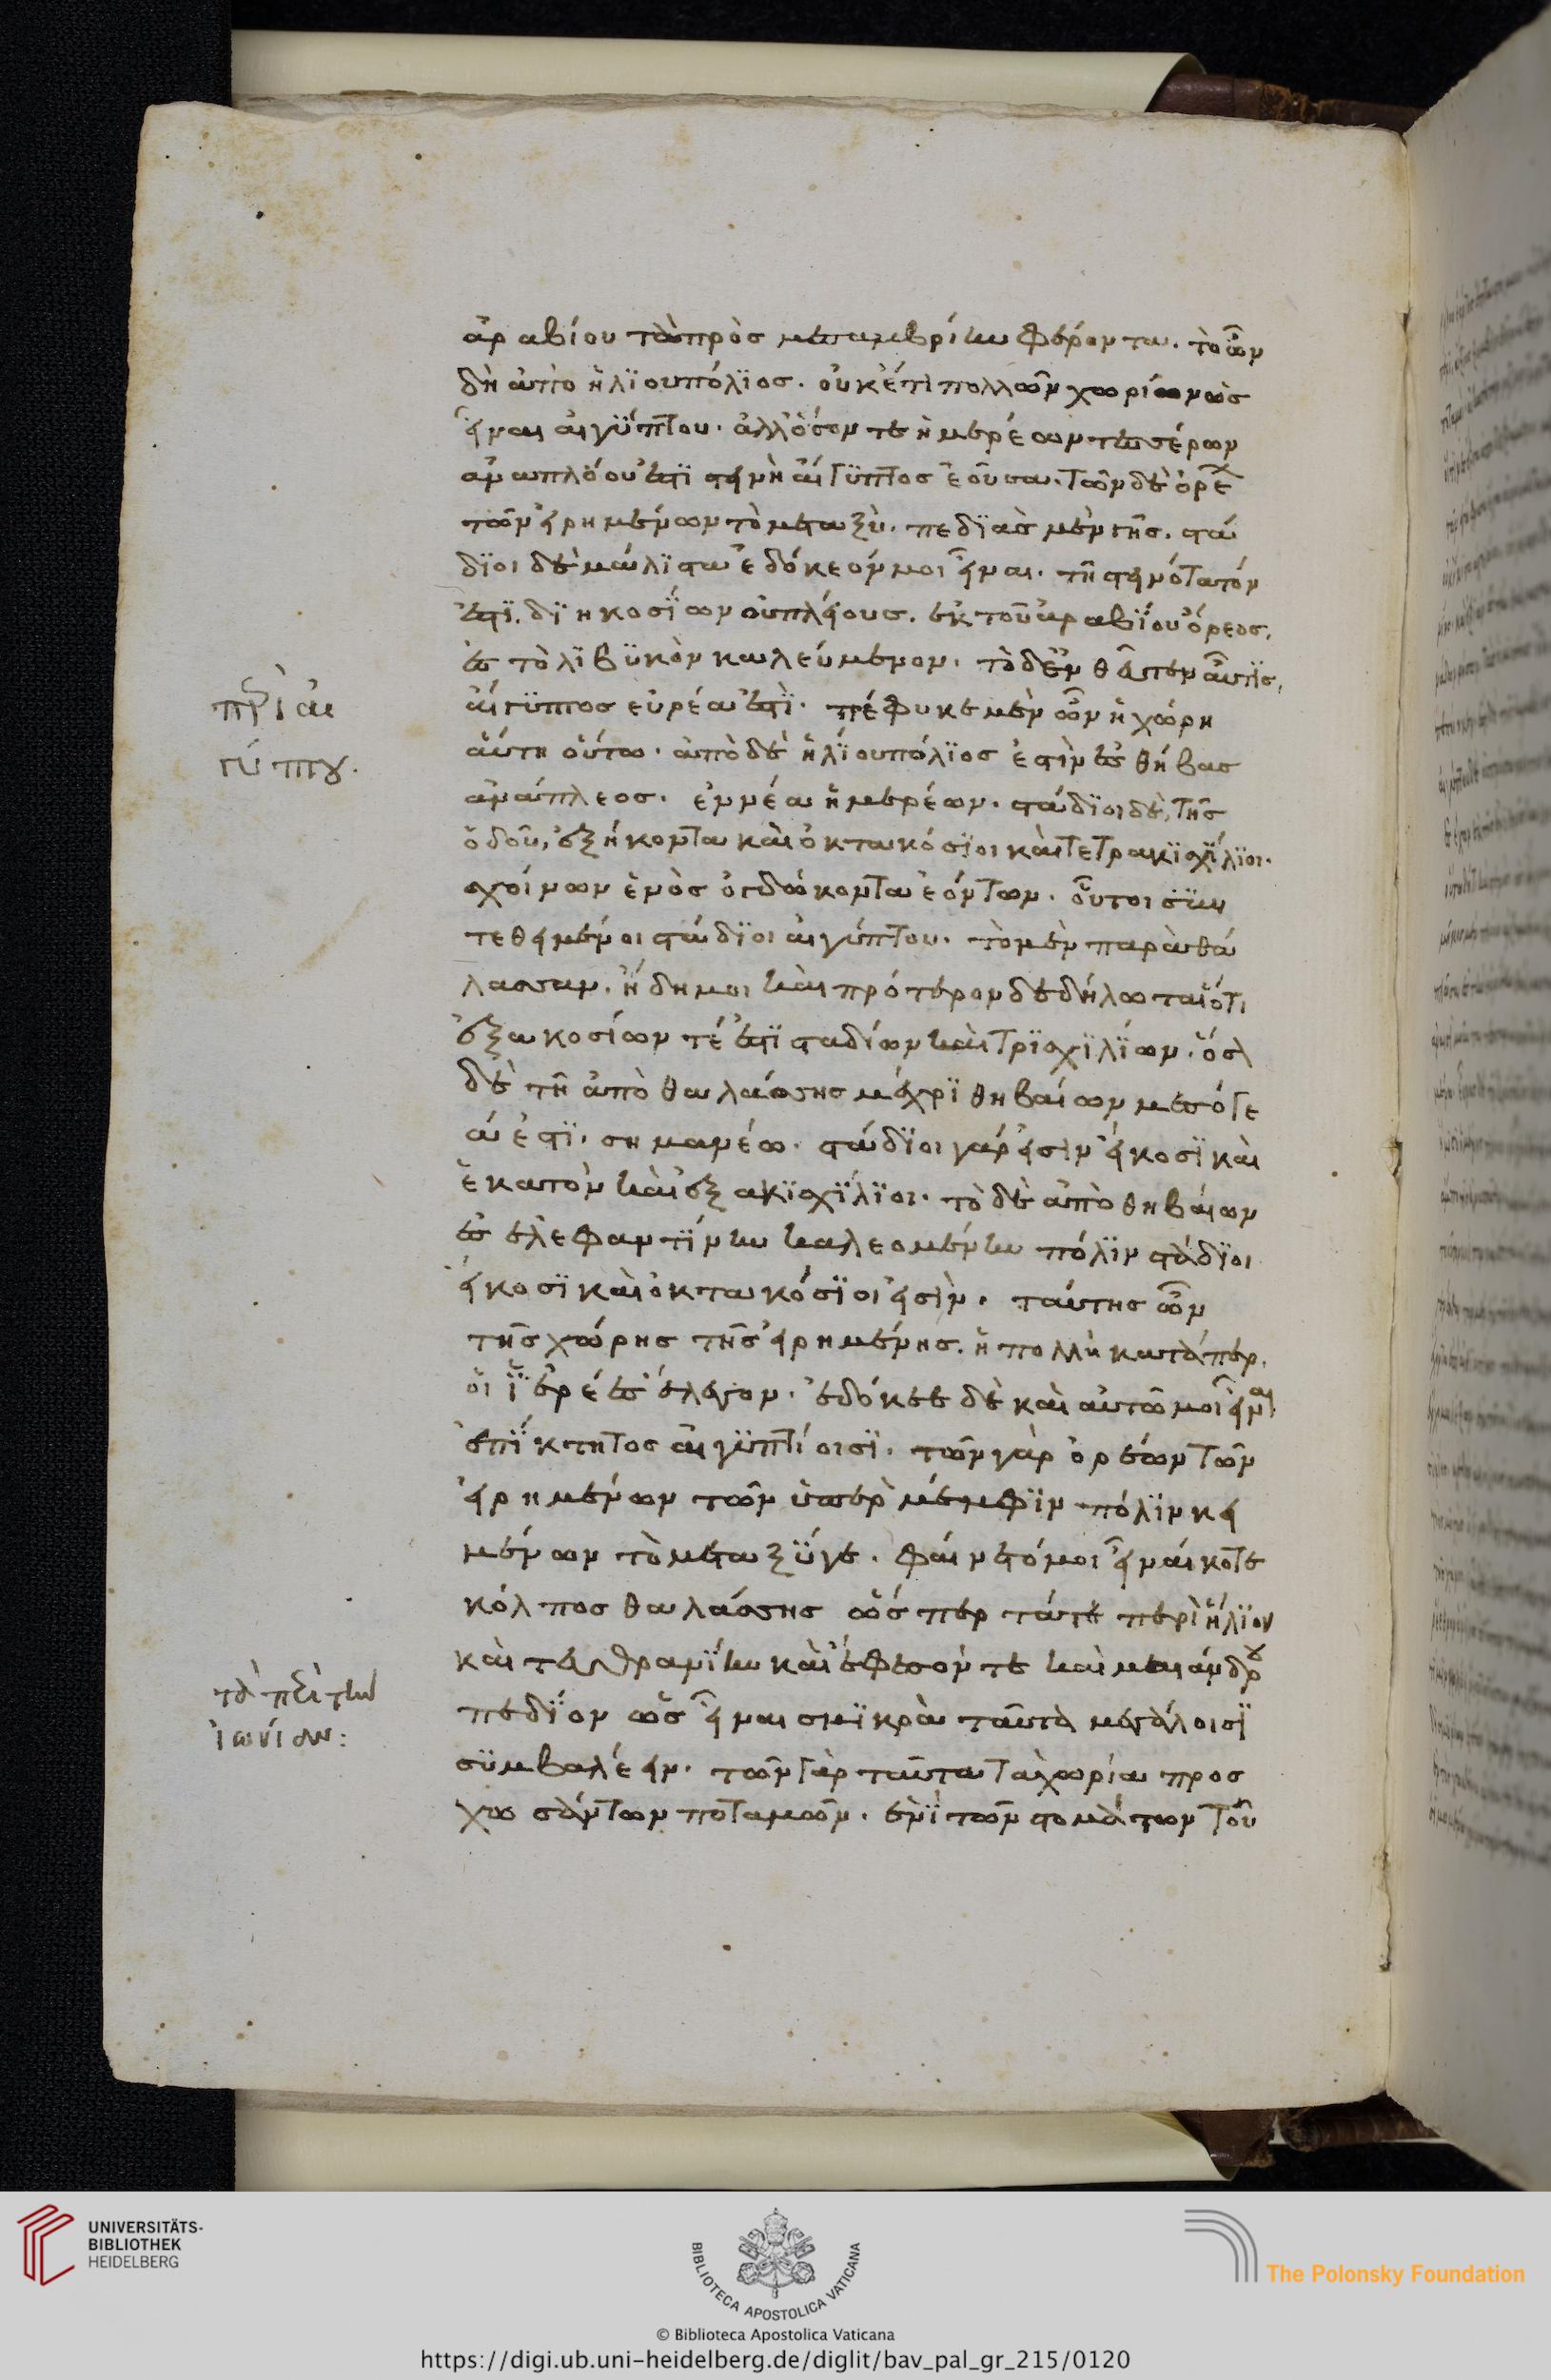 ἀραβίου τὰ πρὸς μεσαμβρίην φέροντα. τὸ ὦν
δὴ ἀπὸ ἡλϊουπόλϊος. οὐκέτι πολλῶν χωρίων ὡς
εἶναι αἰγύπτου. ἀλλ ὅσον τε ἡμερέων τεσσέρων
ἀναπλόου ἐστϊ στεινὴ αἴγϋπτος ἐοῦσα. τῶν δὲ ὀρέων
τῶν εἰρημένων τὸ μεταξὺ. πεδϊὰς μὲν γῆς. στά
δϊοι δὲ μάλϊστα ἐδόκεόν μοι εἶναι. τῆ στεινότατόν
ἐστϊ. δϊηκοσίων οὐ πλείους. ἐκ τοῦ ἀραβΐου ὄρεος,
ἐς τὸ λϊβϋκὸν καλεύμενον. τὸ δ' ἐνθεῦτεν αὖτϊς,
αἴγυπτος εὐρέα ἐστΐ. πέφυκε μέν ὦν ἡ χώρη
αὕτη οὕτω. ἀπὸ δὲ ἡλϊουπόλϊος ἐστὶν ἐς θήβας
ἀνάπλεος. ἐννέα ἡμερέων. στάδϊοι δὲ, τῆς
ὁδοῦ, ἑξήκοντα καὶ ὀκτακόσϊοι καὶ τετρακϊσχΐλϊοι.
σχοίνων ἑνὸς ὀγδώκοντα ἐόντων. οὗτοι σϋν
τεθειμένοι στάδϊοι αἰγύπτου. τὸ μὲν παρὰ θά
λασσαν. ἤδη μοι καὶ πρότερον δεδήλωται ὅτι
ἑξακοσίων τέ ἐστϊ σταδίων καὶ τρϊσχϊλΐων. ὅσον
δὲ τῆ ἀπὸ θαλάσσης μέχρϊ θηβαίων μεσόγε
ά ἐστϊ. σημανέω. στάδϊοι γάρ εἰσὶν εἴκοσϊ καὶ
ἑκατὸν καὶ ἑξακϊσχΐλϊοι. τὸ δὲ ἀπὸ θηβαίων
ἐς ἐλεφαντΐνην καλεομένην πόλϊν στάδϊοι
εἴκοσϊ καὶ ὀκτακόσϊοι εἰσὶν. ταύτης ὦν
τῆς χώρης τῆς εἰρημένης. ἡ πολλὴ κατάπερ.
οἱ ἱερέες ἔλεγον. ἐδόκεε δὲ καὶ αὐτῶ μοι εἶναι
ἐπΐκτητος αἰγϋπτίοισϊ. τῶν γὰρ ὀρέων τῶν
εἰρημένων τῶν ὑπὲρ μέμφϊν πόλϊν κει
μένων τὸ μεταξΰ γε. φαίνετό μοι εἶναί κοτε
κόλπος θαλάσσης ὥσπερ τάγε περὶ ἤλϊον
καὶ τευθρανΐην καὶ ἔφεσόν τε καὶ μαιάνδρου
πεδΐον ὥς εἶναι σμϊκρὰ ταῦτα μεγάλοισϊ
σϋμβαλέειν. τῶν γὰρ ταῦτα τὰ χωρία προσ
χωσάντων ποταμῶν. ἑνὶ τῶν στομάτων τοῦ
περὶ αἰ
γύπτου.
τὰ περὶ τὴν
ἰωνίαν:
UNIVERSITÄTS-
BIBLIOTHEK
HEIDELBERG
BIBLIOTECA APOSTOLICA VATICANA
The Polonsky Foundation
© Biblioteca Apostolica Vaticana
https://digi.ub.uni-heidelberg.de/diglit/bav_pal_gr_215/0120